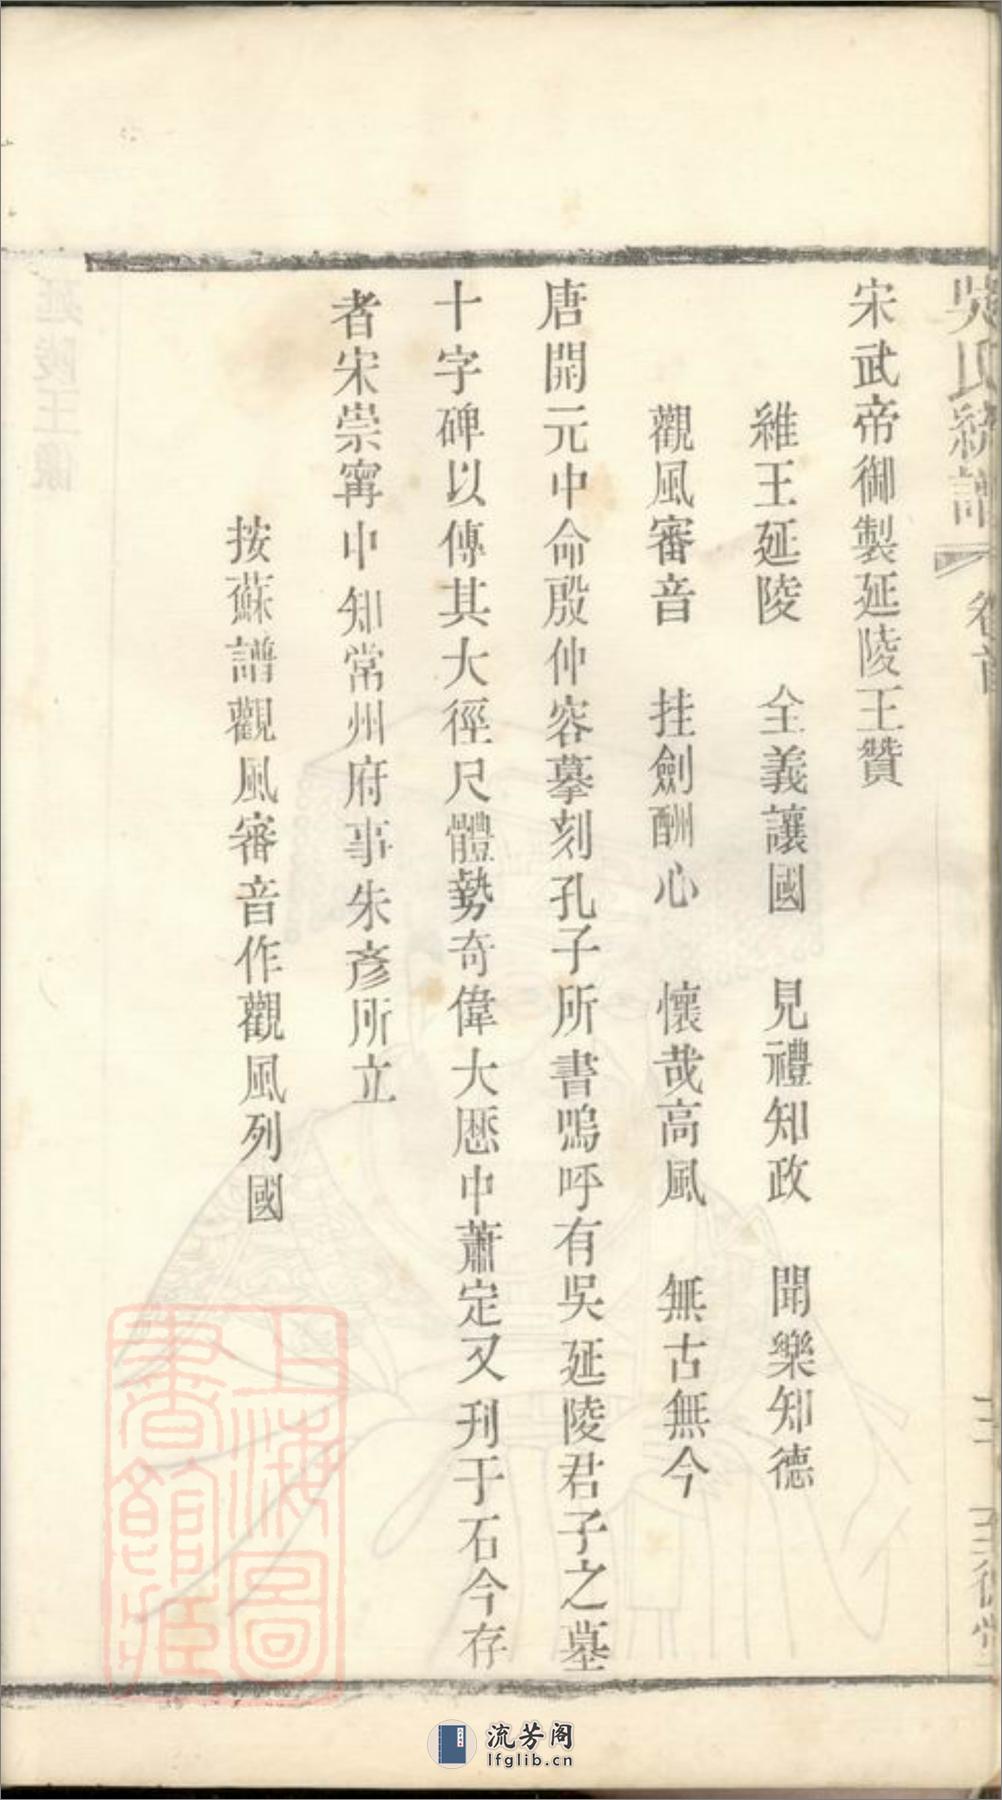 吳氏統譜 卷首 至德堂
宋武帝御製延陵王贊
維王延陵 全義讓國 見禮知政 聞樂知德
觀風審音 挂劍酬心 懷哉高風 無古無今
唐開元中命殷仲容摹刻孔子所書嗚呼有吳延陵君子之墓
十字碑以傳其大徑尺體勢奇偉大歷中蕭定又刊于石今存
者宋崇寧中知常州府事朱彥所立
按蘇譜觀風審音作觀風列國
延陵王像
上海圖書館藏
流芳阁
lfglib.cn